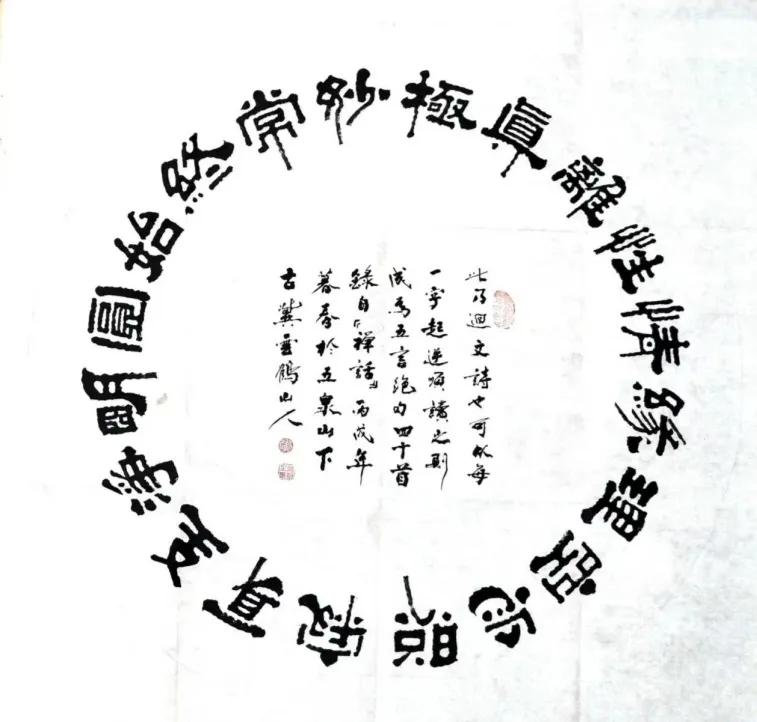 妙極真離性情緣理空忘照寂身反淨明圓始終常
此乃迴文詩也可從每
一字起逆順讀之則
成為五言絕句四十首
錄自「禪話」丙戌年
暮春於五泉山下
古冀雲鶴山人